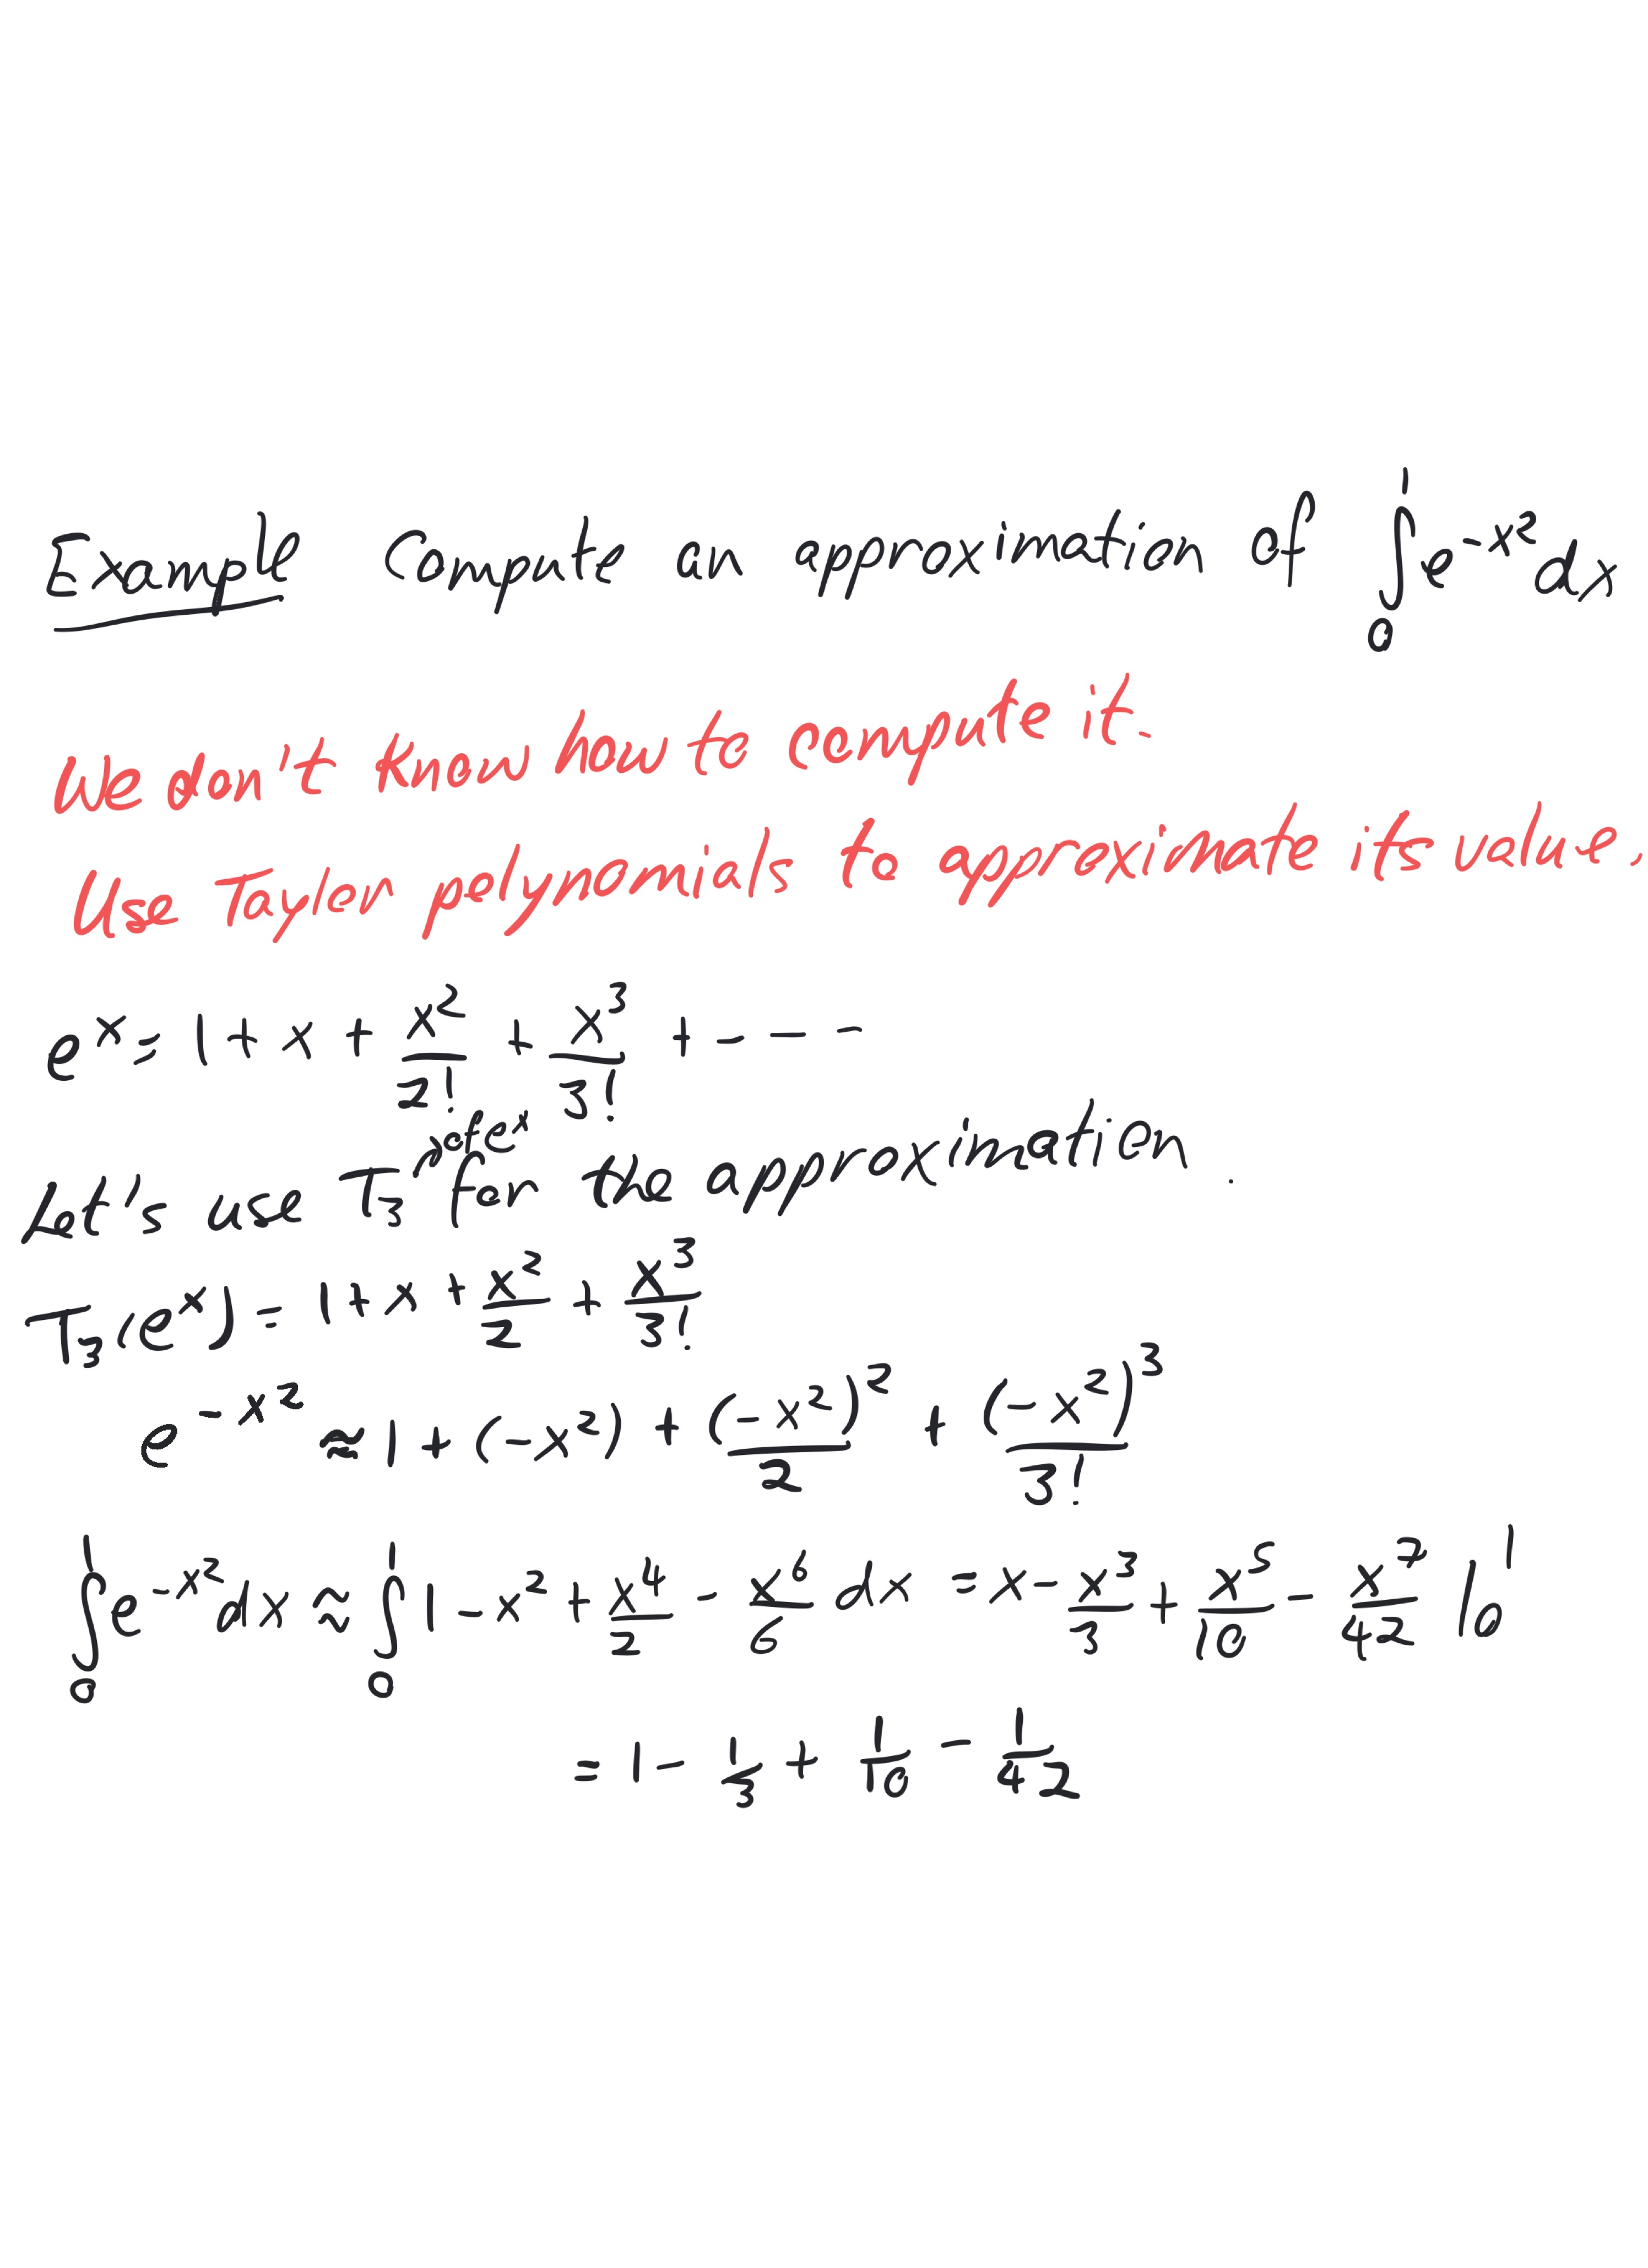 Example Compute an approximation of ∫₀¹ e^{-x²} dx
We don't know how to compute it.
Use Taylor polynomials to approximate its value.
e^x = 1 + x + x²/2! + x³/3! + - - -
Let's use T₃ of e^x for the approximation.
T₃(e^x) = 1 + x + x²/2 + x³/3!
e^{-x²} ≈ 1 + (-x²) + (-x²)²/2 + (-x²)³/3!
∫₀¹ e^{-x²} dx ≈ ∫₀¹ 1 - x² + x⁴/2 - x⁶/6 dx = x - x³/3 + x⁵/10 - x⁷/42 |₀¹
= 1 - 1/3 + 1/10 - 1/42